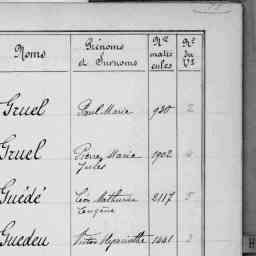 Noms Prénoms et Surnoms Nos matri cules No du Vt
Gruel Paul Marie 920 2
Gruel Pierre Marie 1902 4
Jules
Guédé Léon Mathurin 2117 5
Eugène
Guedeu Victor Hyacinthe 1441 2